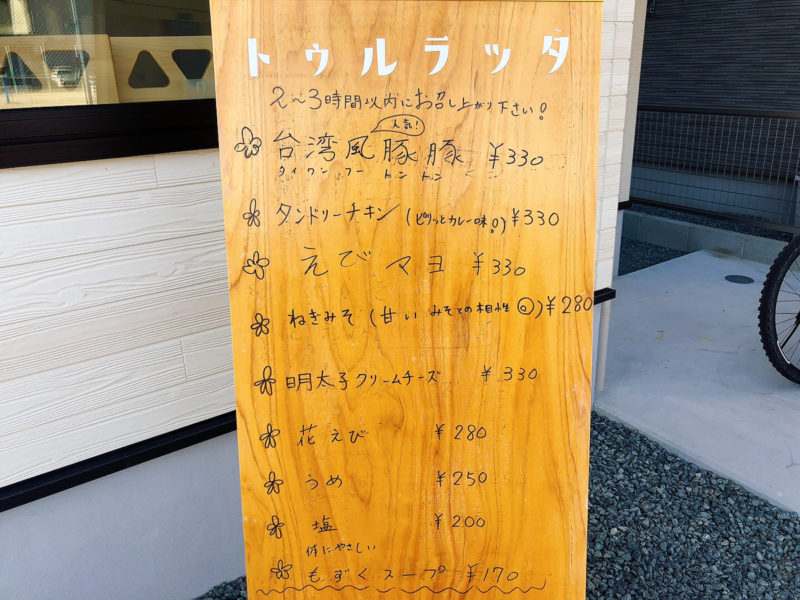 トゥルラッタ
2〜3時間以内にお召し上がり下さい!
人気!
台湾風豚豚 ¥330
タイワンフー トントン
タンドリーチキン(ピリッとカレー味!)¥330
えびマヨ ¥330
ねぎみそ(甘いみそとの相性◎)¥280
明太子クリームチーズ ¥330
花えび ¥280
うめ ¥250
塩 ¥200
体にやさしい
もずくスープ ¥170